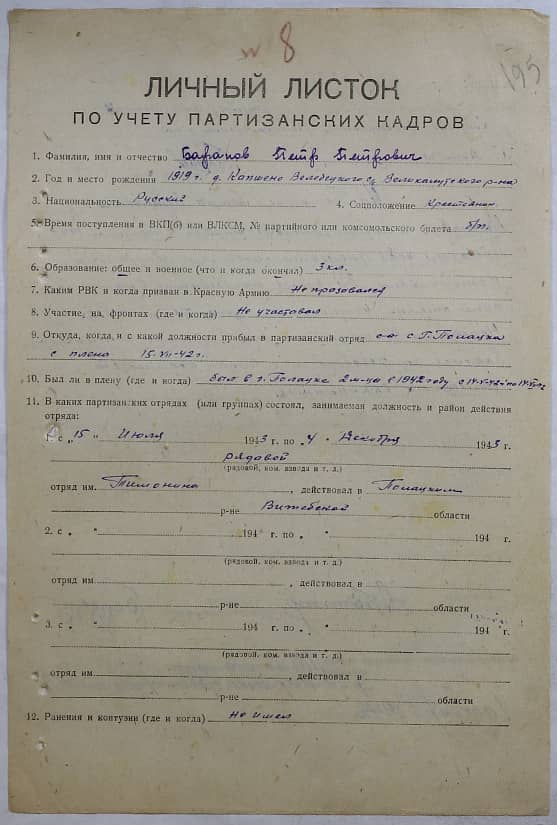 № 8
195
ЛИЧНЫЙ ЛИСТОК
ПО УЧЕТУ ПАРТИЗАНСКИХ КАДРОВ
1. Фамилия, имя и отчество Баранов Петр Петрович
2. Год и место рождения 1919 г. д. Копшено Великолукского р-на
3. Национальность Русский 4. Соцположение Крестьянин
5. Время поступления в ВКП(б) или ВЛКСМ, № партийного или комсомольского билета б/п.
6. Образование: общее и военное (что и когда окончил) 3 кл.
7. Каким РВК и когда призван в Красную Армию Не призовался
8. Участие, на, фронтах (где и когда) Не участвовал
9. Откуда, когда, и с какой должности прибыл в партизанский отряд с Г. Полацка
с плена 15-VII-42 г.
10. Был ли в плену (где и когда) был в г. Полацке 2 м-ца с 1942 году с 14-V-42 по
11. В каких партизанских отрядах (или группах) состоял, занимаемая должность и район действия
отряда:
1. с „15 „ Июля 1943 г. по „4 „ Декабря 1943 г.
рядовой
(рядовой, ком. взвода и т. д.)
отряд им. Тимонина, действовал в Полацком
р-не Витебской области
2. с „ „ 194 г. по „ „ 194 г.
(рядовой, ком. взвода и т. д.)
отряд им. , действовал в
р-не области
3. с „ „ 194 г. по „ „ 194 г.
(рядовой, ком. взвода и т. д.)
отряд им. , действовал в
р-не области
12. Ранения и контузии (где и когда) Не имел